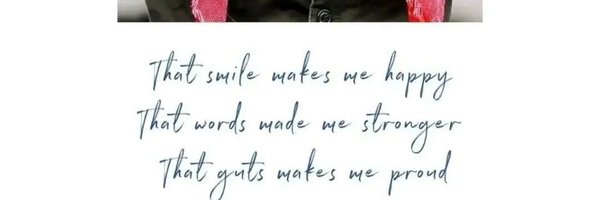 That smile makes me happy
That words made me stronger
That guts makes me proud